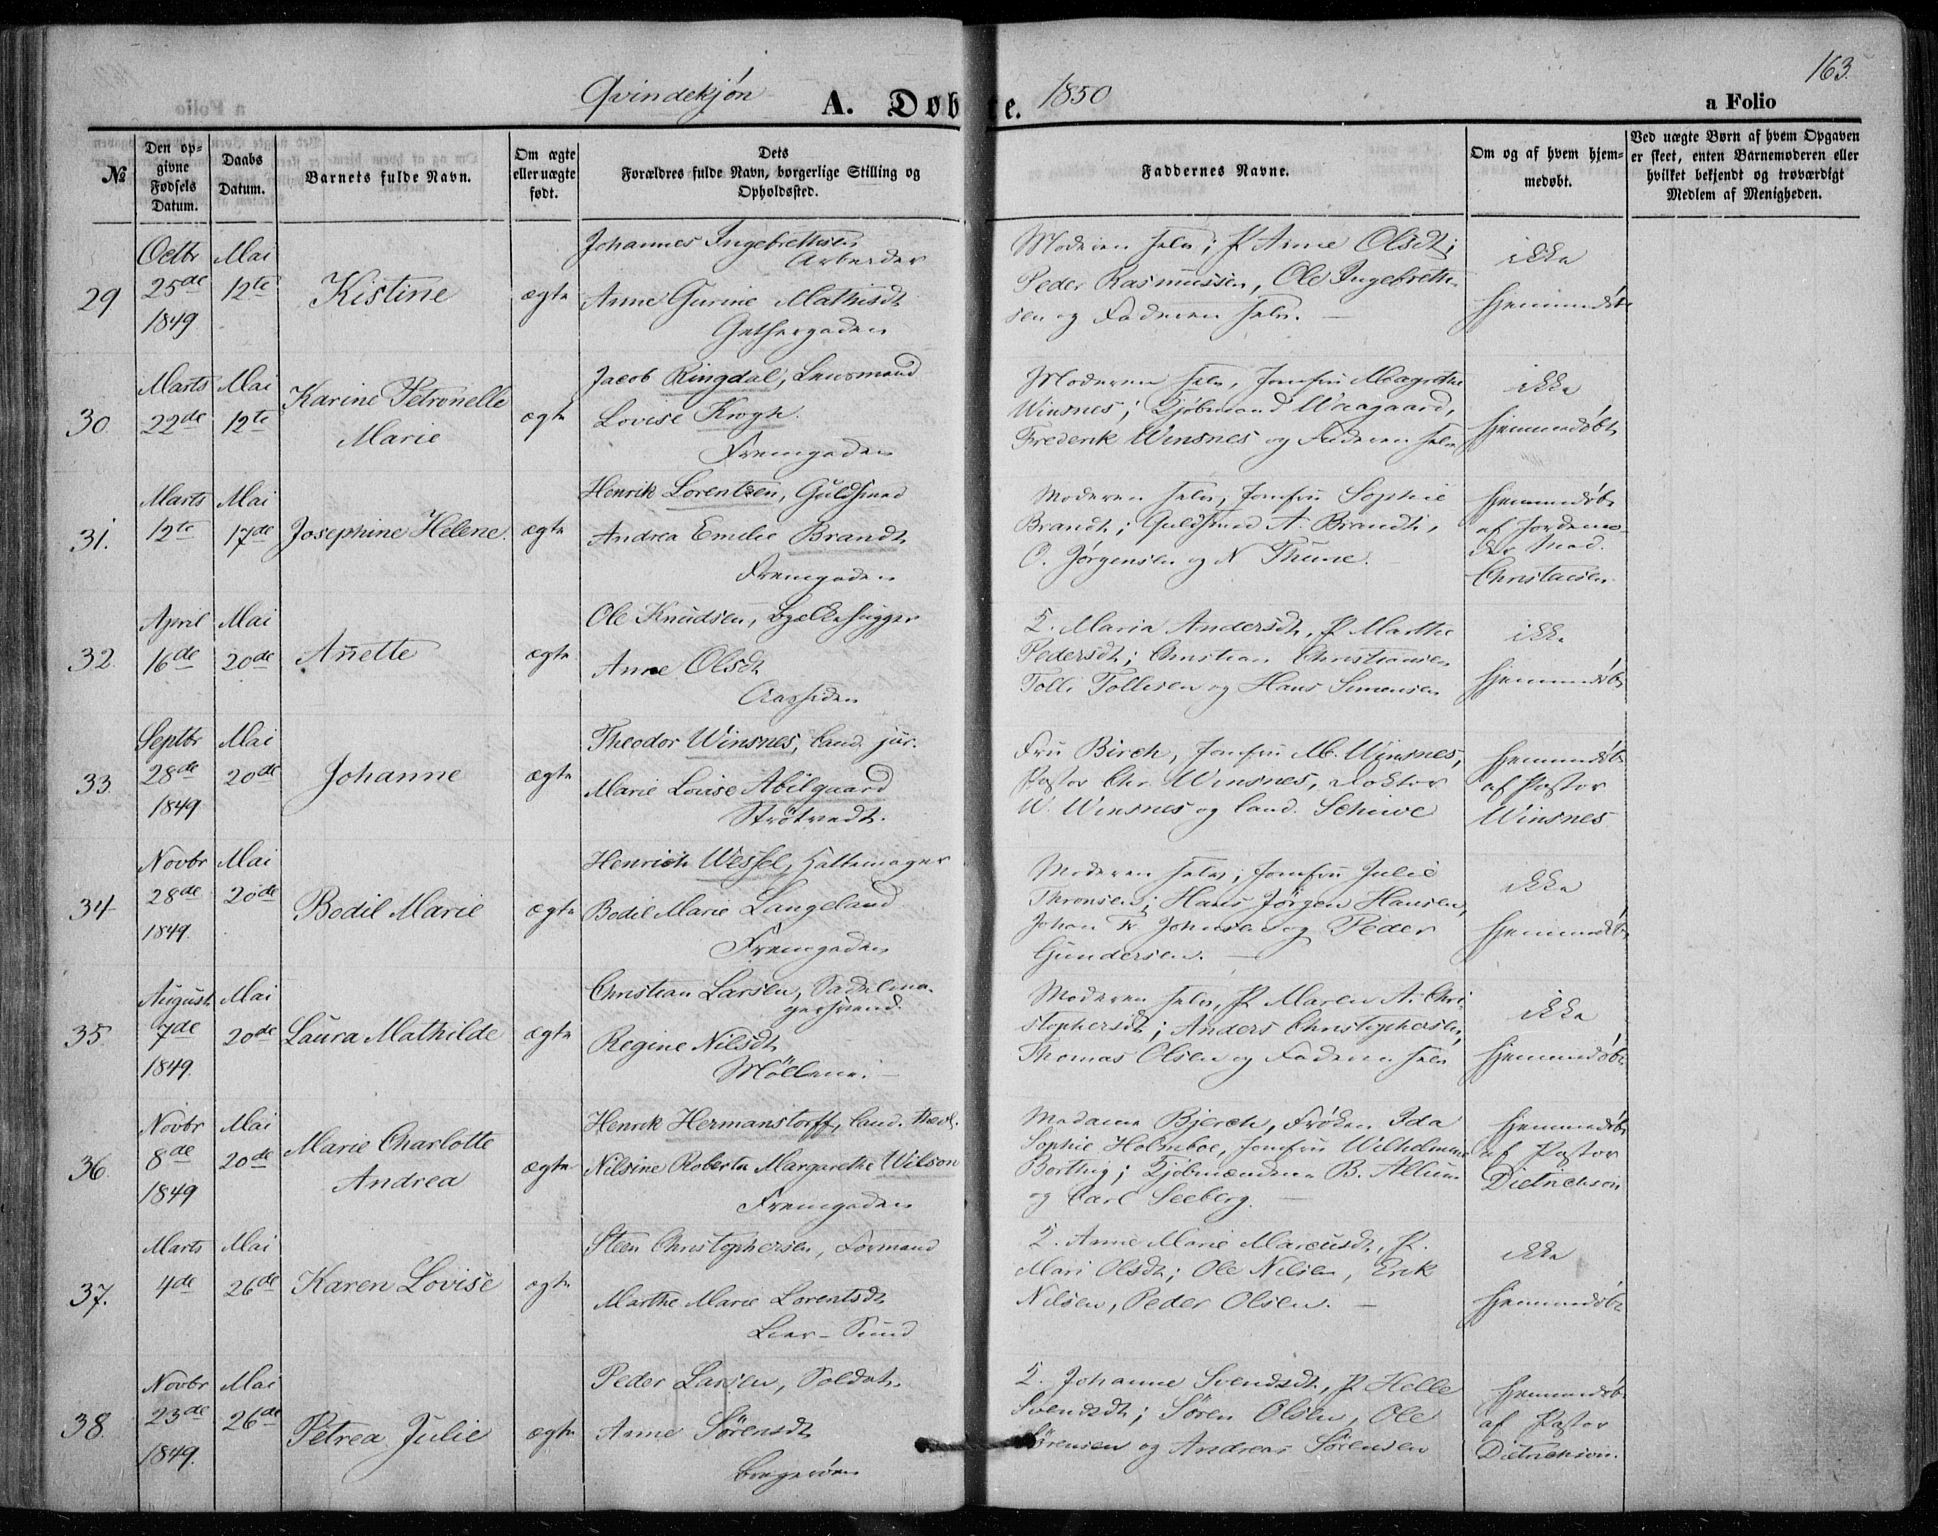 163.
Qvindekjøn A. Døb te. 1850 a Folio
№
Den opgivne Fødsels Datum.
Daabs Datum.
Barnets fulde Navn.
Om ægte eller uægte født.
Dets Forældres fulde Navn, borgerlige Stilling og Opholdssted.
Faddernes Navne.
Om og af hvem hjemmedøbt.
Ved uægte Børn af hvem Opgaven er skeet, enten Barnemoderen eller hvilket bekjendt og troværdigt Medlem af Menigheden.
29
Octbr 25de 1849
Mai 12te
Kistine
ægte
Johannes Ingebrethsen
Arbeider
Anne Gurine Mathisdt
Moderen selv; P Anne Olsdt;
Peder Rasmussen, Ole Ingebreth
sen og Faderen selv. —
ikke
hjemmedøbt
30.
Marts 22de
Mai 12te
Karine Petronelle
Marie
ægte
Jacob Ringdal, Lensmand
Lovise Krogh.
Fremgaden
Moderen selv, Jomfru Magrethe
Winsnes; Kjøbmand Waagaard,
Frederik Winsnes og Faderen selv
ikke
hjemmedøbt
31.
Marts 12te
Mai 17de
Josephine Helene.
ægte
Henrik Lorentzen, Guldsmed
Andrea Emilie Brandt
Fremgaden
Moderen selv, Jomfru Sophie
Brandt; Guldsmed A. Brandt,
O. Jørgensen og N Thune.
hjemmedøbt
af Jordemo-
der Mad.
32.
April 16de
Mai 20de
Anette
ægte
Ole Knudsen, Bjelkehugger
Anne Olsdt
Aassiden
Q. Maria Andersdt, P Marthe
Pedersdt; Christian Christiansen
Tolli Tollisen og Hans Simensen
ikke
hjemmedøbt
33.
Septbr 28de 1849
Mai 20de
Johanne
ægte
Theodor Winsnes, Cand. jur.
Marie Lovise Abilgaard
Strøtvedt.
Fru Birch, Jomfru M. Winsnes,
Pastor Chr. Winsnes, Doktor
W. Winsnes og Cand. Schive
hjemmedøbt
af Pastor
Winsnes
34
Novbr 28de 1849.
Mai 20de
Bodil Marie
ægte
Henrich Wessel, Hattemager
Bodil Marie Langeland
Fremgaden
Moderen selv; Jomfru Julie
Thronsen; Hans Jørgen Hansen,
Johan Fr Johnsen og Peder
Gundersen. —
ikke
hjemmedøbt
35.
August 7de 1849.
Mai 20de
Laura Mathilde
ægte
Christian Larsen, Sadelma-
gersvend.
Regine Nilsdt
Möllene. —
Moderen selv, P Maren A. Chri
stophersdt; Anders Christophersen,
Thomas Olsen og Faderen selv
ikke
hjemmedøbt
36.
Novbr 8de 1849
Mai 20de
Marie Charlotte
Andrea
ægte
Henrik Hermanstorff, Cand. theol.
Nilsine Roberta Margarethe Wilson
Fremgaden
Madame Bjerch, Frøken Ida
Sophie Holmboe, Jomfru Wilhelmine
Borthig; Kjøbmændene B. Allum
og Carl Seeberg. —
hjemmedøbt
af Pastor
Dietrichson
37.
Marts 4de
Mai 26de
Karen Lovise
ægte
Steen Christophersen, Formand
Marthe Marie Lorentsdt
Lier-Sund
Q. Anne Marie Marcusdt, P.
Mari Olsdt; Ole Nilsen, Erik
Nilsen, Peder Olsen. —
ikke
hjemmedøbt
38.
Novbr 23de 1849.
Mai 26de
Petrea Julie
ægte
Peder Larsen, Soldat
Anne Sörensdt
Bragerøen
Q. Johanne Svendsdt, P Helle
Svendsdt; Sören Olsen, Ole
Sörensen og Andreas Sörensen
hjemmedøbt
af Pastor
Dietrichson.